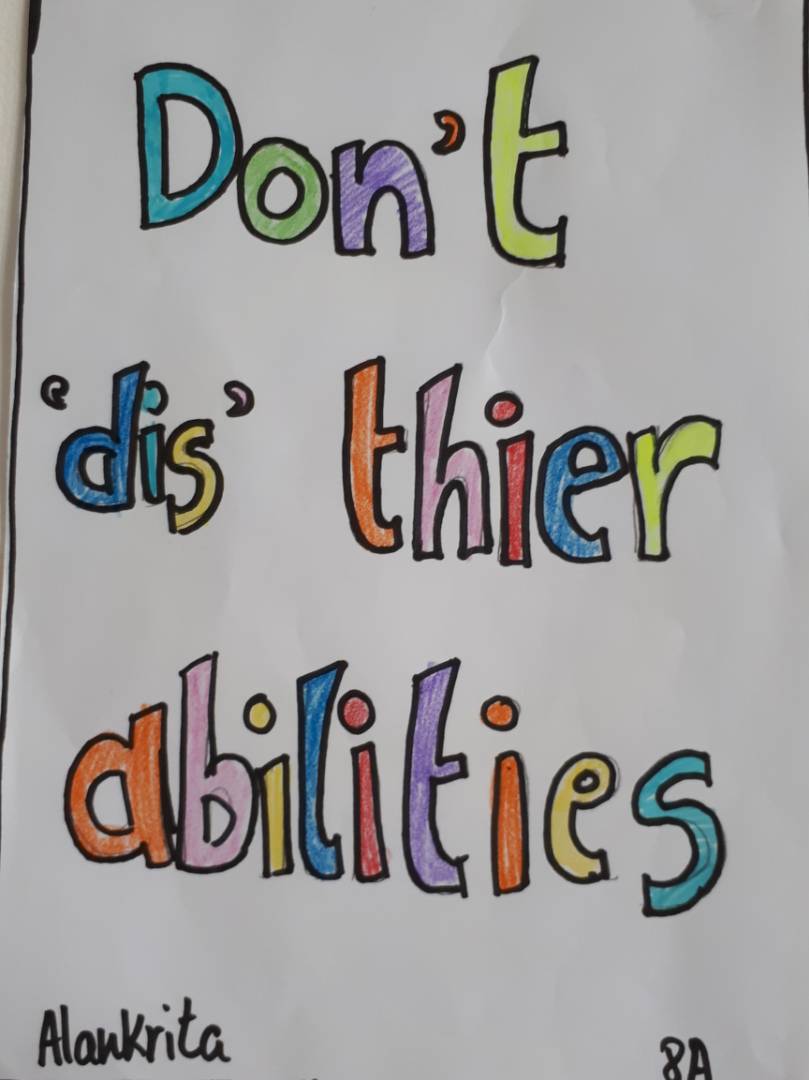 Don't
'dis' thier
abilities
Alankrita 8A